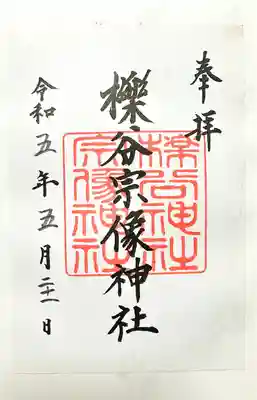 奉拝
櫟谷宗像神社
櫟谷神社
宗像神社
令和五年五月二十一日